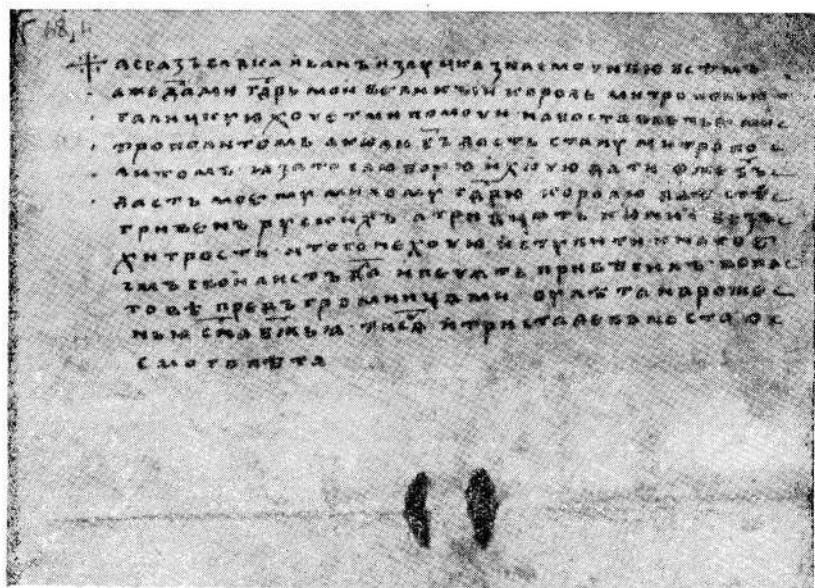 48, 4
а се азъ влдка иванъ из луцка знаемо чиню всѣмъ
аже да ми гдрь мои великыи король митрополью
галицкую хочет ми помочи на поставленье ми
трополитомъ аже ми бъ дасть стану митропо
литомъ ꙗ за то слюбую и хочю дати оже бъ
дасть моему милому гдрю королю двѣстѣ
гривенъ рускихъ а тридцать кони безъ
хитрости и того не хочю иступити и на то е
смь свои листъ да и печать привѣсилъ в опа
товѣ предъ громницами оу лѣта нароже
нью сна бжьꙗ тисѧ и триста девѧноста о
смого лѣта